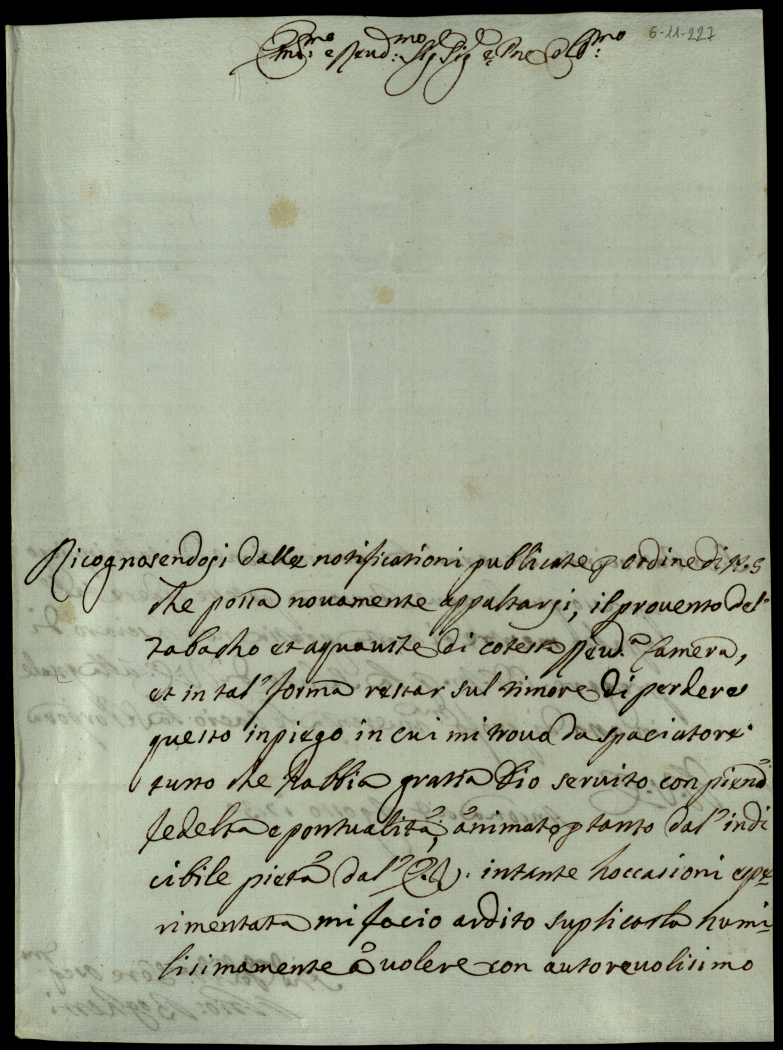 6-11-227
Em:mo e Reud:mo Sig.r Sig.r e Pne Col:mo
Ricognosendosi dalle notificationi publicate p ordine di N.S
che possa novamente appaltarsi, il provento del
tabacho et aquavite di cotesta Reud.a Camera,
et in tal forma restar sul timore di perdere
questo inpiego in cui mi trovo da spaciatore
tutto che habbia gratia Dio servito con piena
fedelta e pontualità, animato p tanto dal indi
cibile pietà dal E.V. in tante hoccasioni espe
rimentata mi facio ardito suplicarla humi-
lisimamente à volere con autorevolisimo